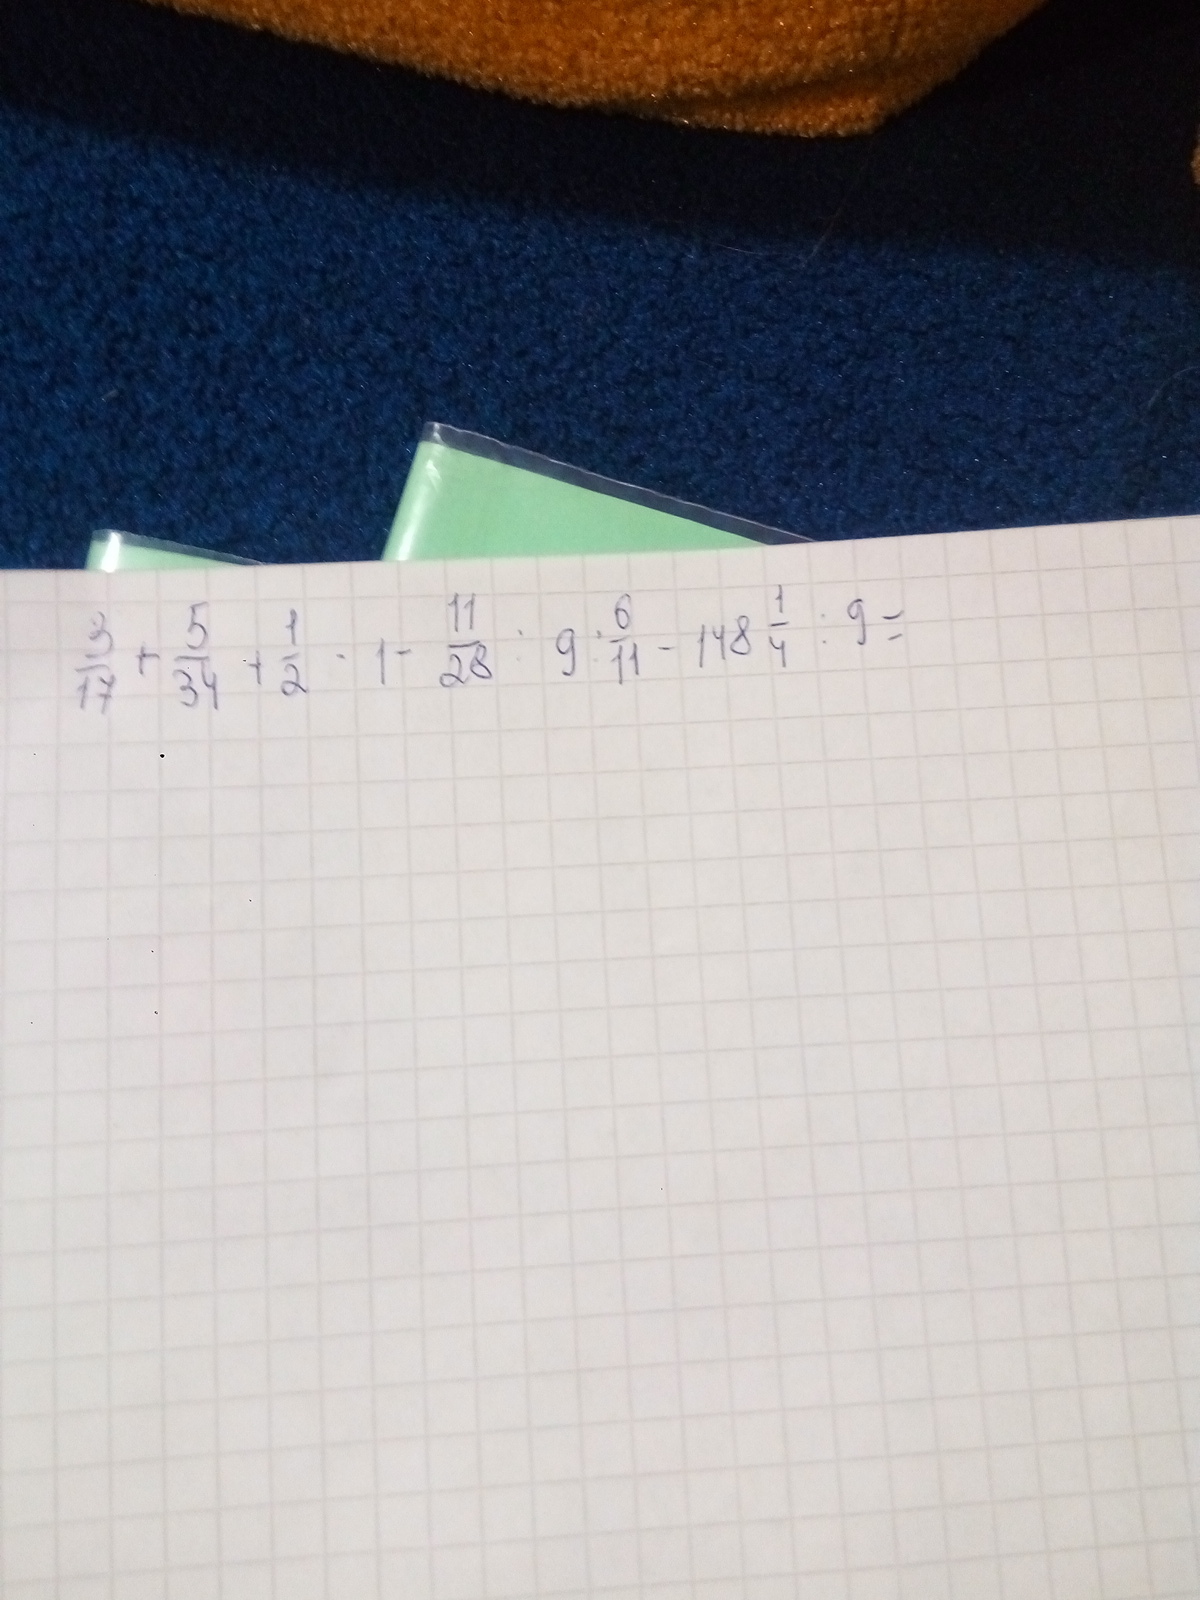 3/17 + 5/34 + 1/2 · 1 - 11/28 : 9 : 6/11 - 148 1/4 : 9 =